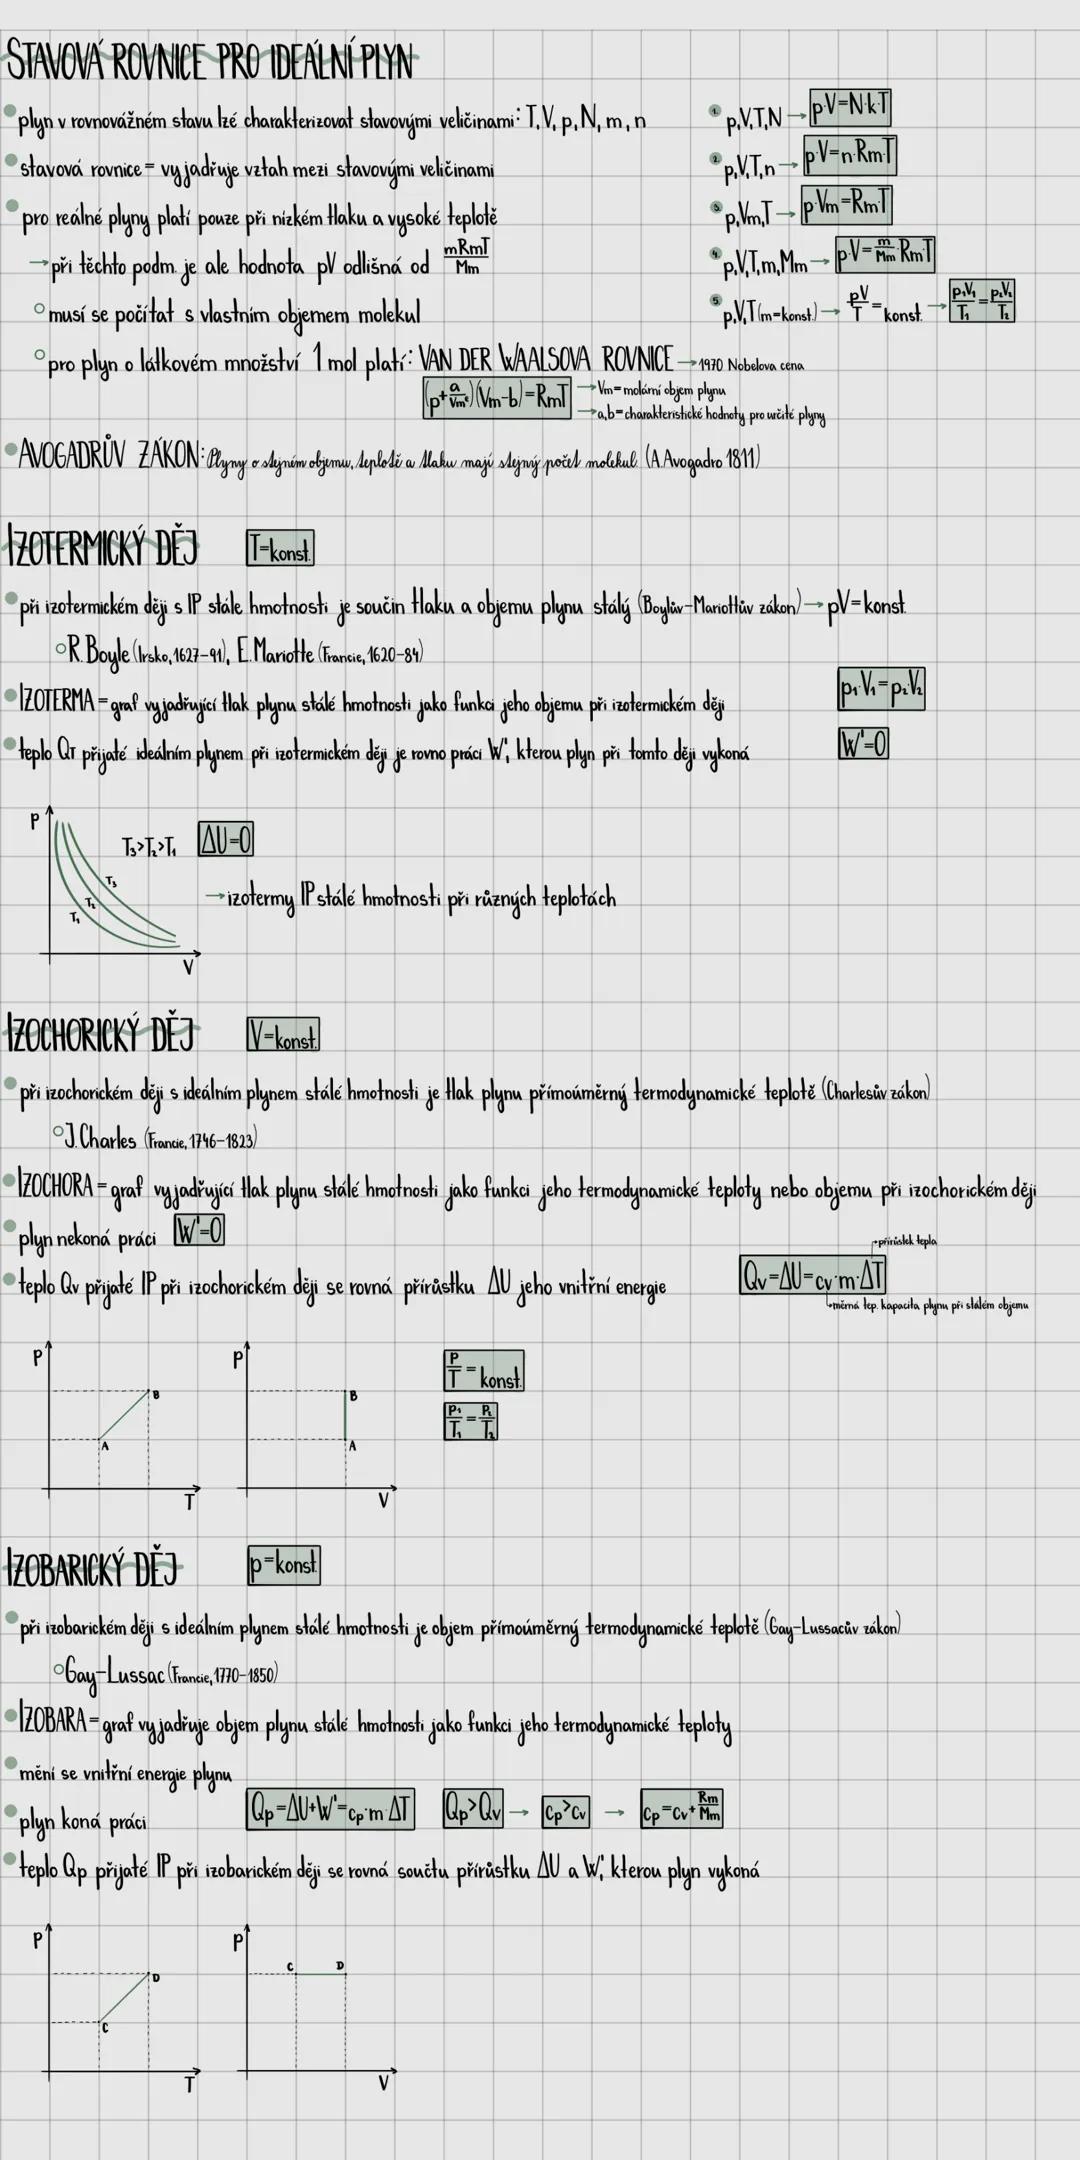 STAVOVÁ ROVNICE PRO IDEÁLNÍ PLYN
plyn v rovnovážném stavu lzé charakterizovat stavovými veličinami: T, V, p, N, m, n
stavová rovnice = vyjadřuje vztah mezi stavovými veličinami
pro reálné plyny platí pouze při nízkém tlaku a vysoké teplotě
→ při těchto podm. je ale hodnota pV odlišná od mRmT/Mm
musí se počítat s vlastním objemem molekul
pro plyn o látkovém množství 1 mol platí: VAN DER WAALSOVA ROVNICE → 1970 Nobelova cena
(p+a/Vm²)(Vm-b)=RmT
→ Vm = molární objem plynu
→ a,b = charakteristické hodnoty pro určité plyny
1. p,V,T,N → p·V=N·k·T
2. p,V,T,n → p·V=n·RmT
3. p,Vm,T → p·Vm=RmT
4. p,V,T,m,Mm → p·V=m/Mm·RmT
5 p,V,T (m=konst.) → pV/T = konst. → p₁V₁/T₁ = p₂V₂/T₂
AVOGADRŮV ZÁKON: Plyny o stejném objemu, teplotě a tlaku mají stejný počet molekul. (A.Avogadro 1811)
IZOTERMICKÝ DĚJ T=konst.
při izotermickém ději s IP stále hmotnosti je součin tlaku a objemu plynu stálý (Boylův-Mariottův zákon) → pV=konst.
R. Boyle (Irsko, 1627-91), E. Mariotte (Francie, 1620-84)
IZOTERMA = graf vyjadřující tlak plynu stálé hmotnosti jako funkci jeho objemu při izotermickém ději
p₁·V₁=p₂·V₂
teplo QT přijaté ideálním plynem při izotermickém ději je rovno práci W', kterou plyn při tomto ději vykoná
W'=0
p
T₃>T₂>T₁ ΔU=0
T₃
T₂
T₁
→ izotermy IP stálé hmotnosti při různých teplotách
V
IZOCHORICKÝ DĚJ V=konst.
při izochorickém ději s ideálním plynem stálé hmotnosti je tlak plynu přímoúměrný termodynamické teplotě (Charlesův zákon)
J. Charles (Francie, 1746-1823)
IZOCHORA = graf vyjadřující tlak plynu stálé hmotnosti jako funkci jeho termodynamické teploty nebo objemu při izochorickém ději
plyn nekoná práci W'=0
teplo Qv přijaté IP při izochorickém ději se rovná přírůstku ΔU jeho vnitřní energie
přírůstek tepla
Qv=ΔU=cv·m·ΔT
měrná tep. kapacita plynu při stálém objemu
p
B
A
T
p
B
A
V
p/T = konst.
p₁/T₁ = p₂/T₂
IZOBARICKÝ DĚJ p=konst.
při izobarickém ději s ideálním plynem stálé hmotnosti je objem přímoúměrný termodynamické teplotě (Gay-Lussacův zákon)
Gay-Lussac (Francie, 1770-1850)
IZOBARA = graf vyjadřuje objem plynu stálé hmotnosti jako funkci jeho termodynamické teploty
mění se vnitřní energie plynu
plyn koná práci Qp=ΔU+W'=cp·m·ΔT Qp>Qv → cp>cv → cp=cv+Rm/Mm
teplo Qp přijaté IP při izobarickém ději se rovná součtu přírůstku ΔU a W', kterou plyn vykoná
p
D
C
T
p
C D
V